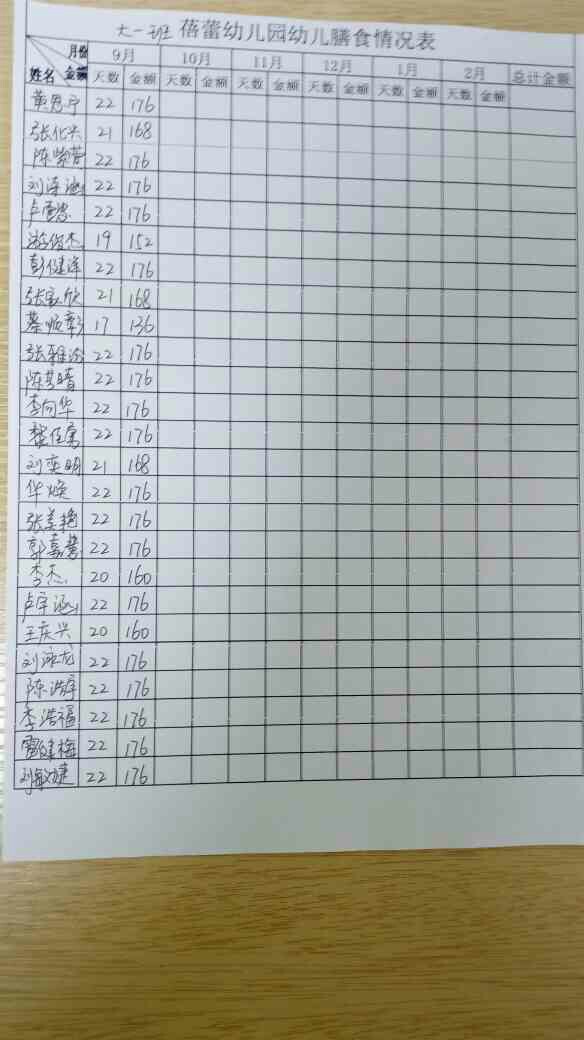 大一班 蓓蕾幼儿园幼儿膳食情况表
月份 9月 10月 11月 12月 1月 2月 总计金额
姓名 金额 天数 金额 天数 金额 天数 金额 天数 金额 天数 金额 天数 金额
黄思宁 22 176
张化兴 21 168
陈紫萱 22 176
刘涵 22 176
卢雪 22 176
游俊杰 19 152
彭健泽 22 176
张家欣 21 168
蔡顺彰 17 136
张雅 22 176
陈梦晴 22 176
李向华 22 176
佳 22 176
刘奕明 21 168
华焕 22 176
张美艳 22 176
郭嘉慧 22 176
李杰 20 160
卢宇涵 22 176
王庆兴 20 160
刘泳龙 22 176
陈浩宇 22 176
李浩福 22 176
健梅 22 176
刘敏婕 22 176